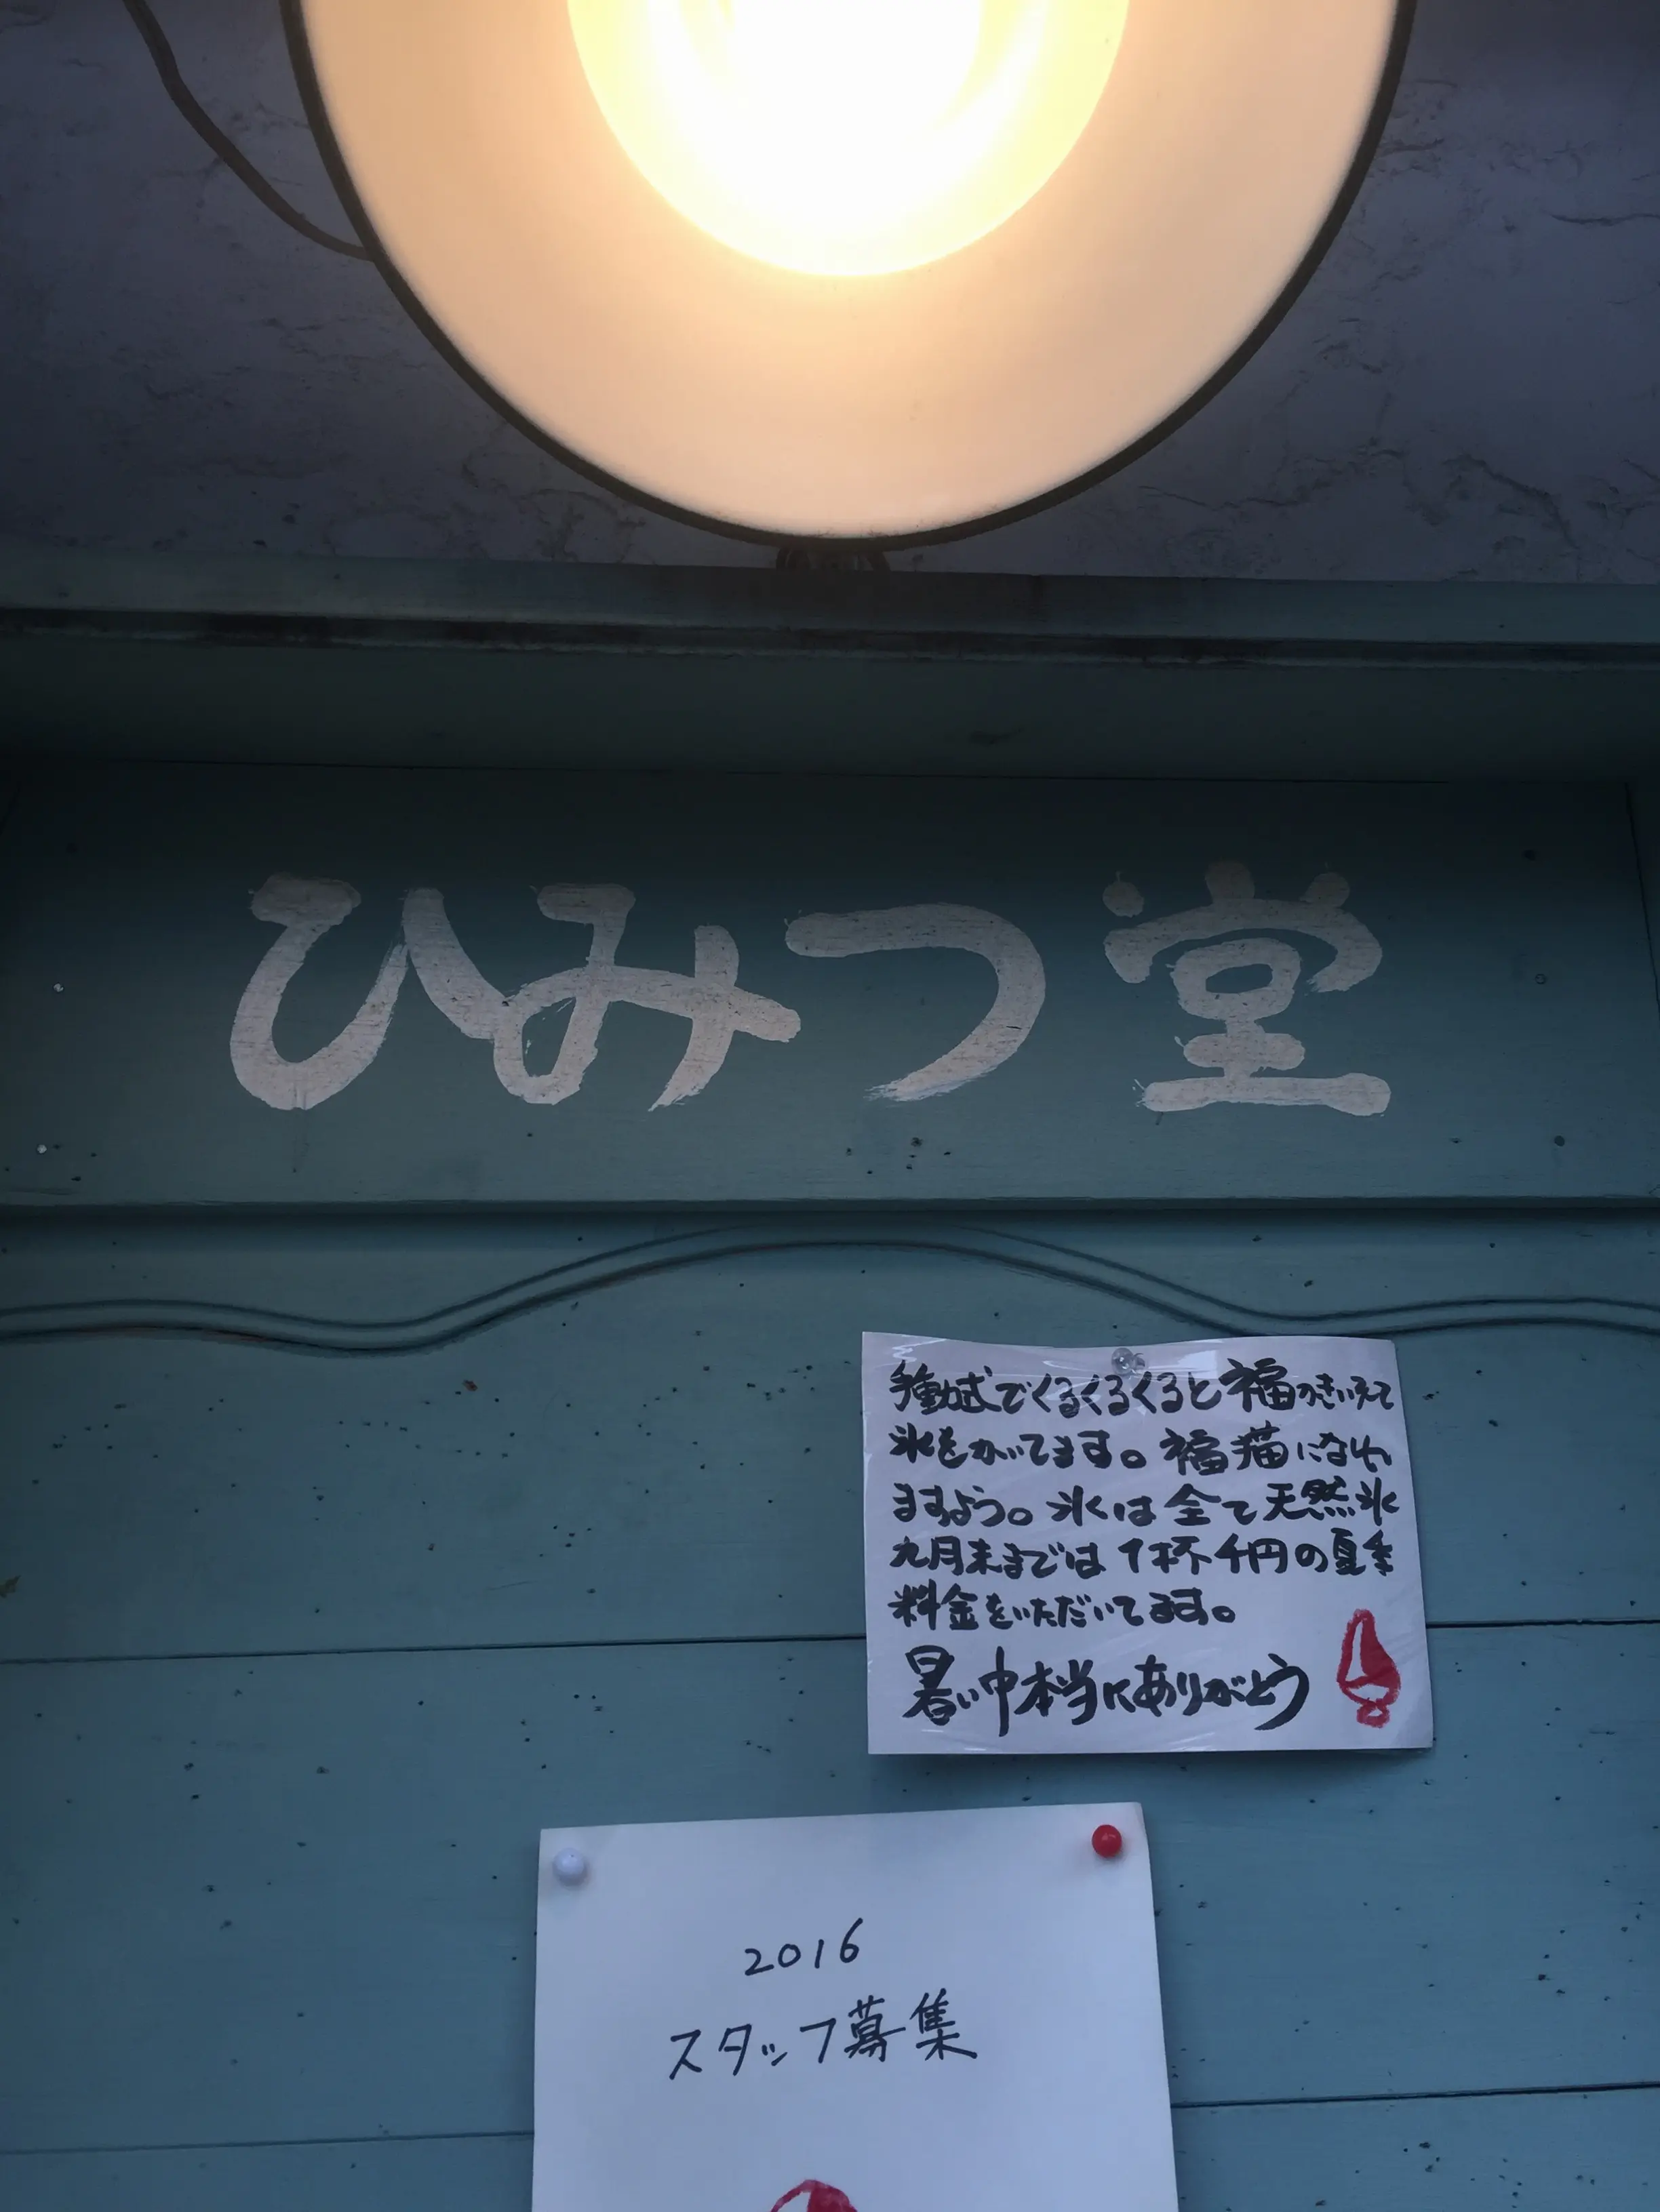 ひみつ堂
手動式でくるくるくると福
氷をかいてます。福猫になれ
ますよう。氷は全て天然氷
九月末までは1杯千円の夏季
料金をいただいてます。
暑い中本当にありがとう
2016
スタッフ募集